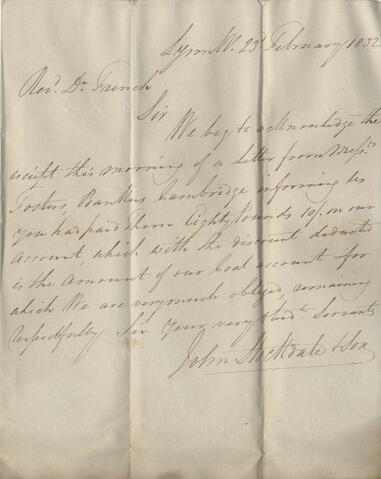 Lynn 23d. February 1832
Revd. Dr. French
Sir
We beg to acknowledge the
receipt this morning of a Letter from Messrs.
Fosters Bankers Cambridge informing us
you had paid them Eighty Pounds 10/. on our
Account, which with the discount deducted
is the Amount of our Coal account - for
which We are very much obliged, remaining
respectfully Sir Your very obedt. Servants
John Stockdale & Son